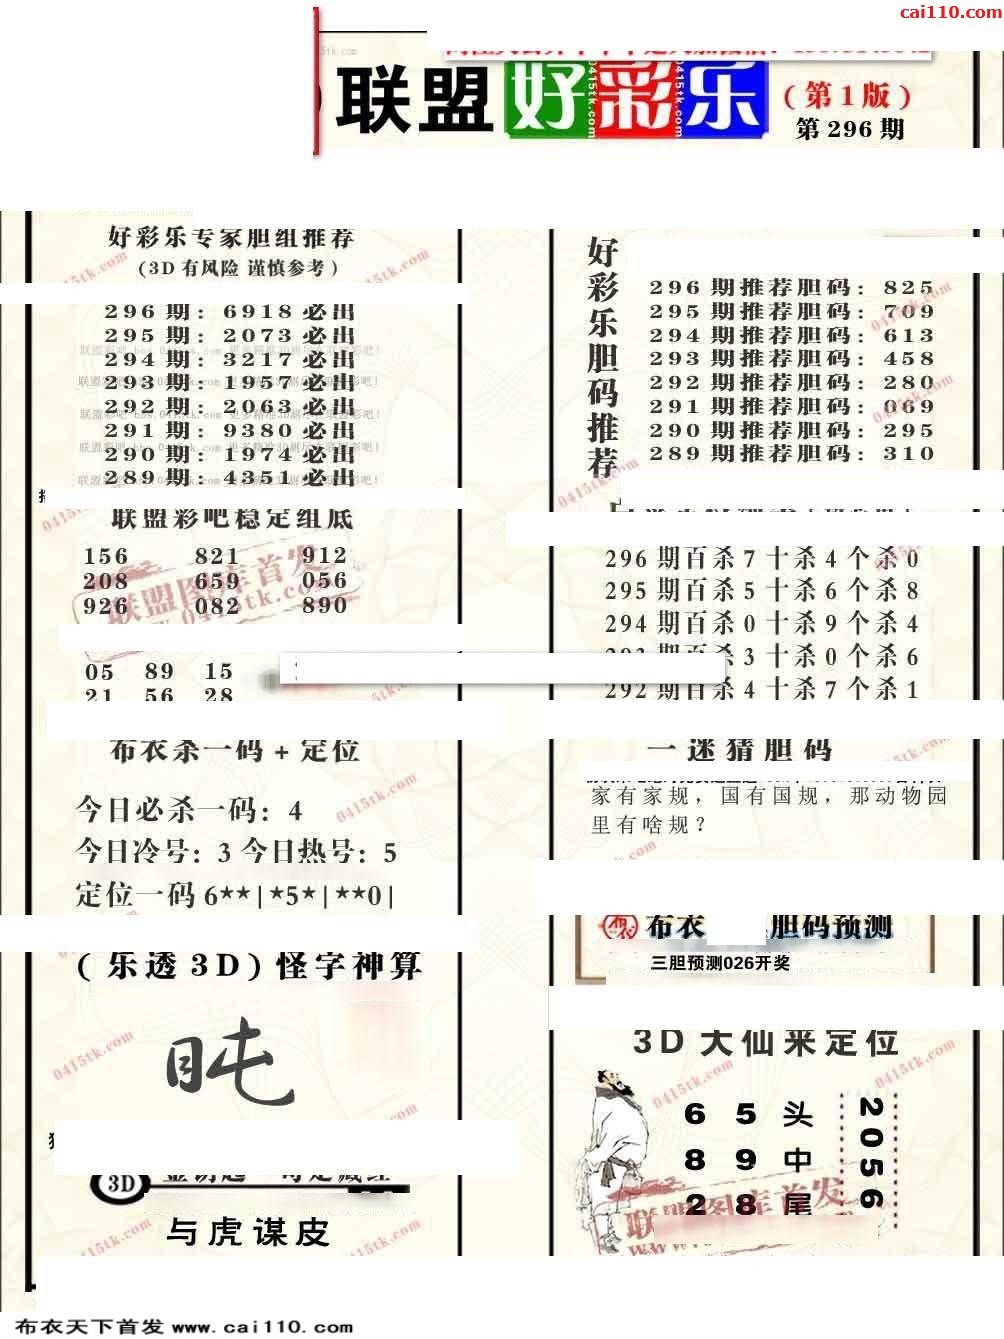 cai110.com
联盟好彩乐
(第1版)
第296期
好彩乐专家胆组推荐
(3D有风险 谨慎参考)
296期: 6918必出
295期: 2073必出
294期: 3217必出
293期: 1957必出
292期: 2063必出
291期: 9380必出
290期: 1974必出
289期: 4351必出
联盟彩吧稳定组底
156 821 912
208 659 056
926 082 890
05 89 15
21 56 28
布衣杀一码+定位
今日必杀一码: 4
今日冷号: 3 今日热号: 5
定位一码 6**|*5*|**0|
(乐透3D)怪字神算
3D
与虎谋皮
好彩乐胆码推荐
296期推荐胆码: 825
295期推荐胆码: 709
294期推荐胆码: 613
293期推荐胆码: 458
292期推荐胆码: 280
291期推荐胆码: 069
290期推荐胆码: 295
289期推荐胆码: 310
296期百杀7十杀4个杀0
295期百杀5十杀6个杀8
294期百杀0十杀9个杀4
293期百杀3十杀0个杀6
292期百杀4十杀7个杀1
一迷猜胆码
家有家规，国有国规，那动物园
里有啥规？
布衣 胆码预测
三胆预测026开奖
3D大仙来定位
6 5 头
8 9 中
2 8 尾
2056
联盟图库首发
0415tk.com
布衣天下首发 www.cai110.com